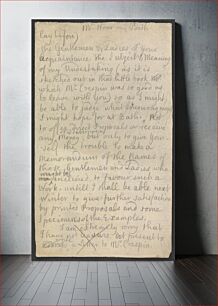 Mr How my Youth
Ray Lyfon,
the Gentlemen & Ladies of your
acquaintance the Subject & Meaning
of my Undertaking (as it is
sketched out in that little book Mr
which Mr Crespin was so good as
to leave with you) so as I might
be able to judge what encouragement
I might hope for at Bath, Not
to offer Proposals or receive
any Money, but only to give your
self the trouble to make a
Memorandum of the Names of
those Gentlemen and Ladies who
inclined to favour such a
Work, until I shall be able next
Winter to give further satisfaction
by printed Proposals and some
Specimens of the Examples.
I am extremely sorry that
I have not
a letter to Mr Crespin.